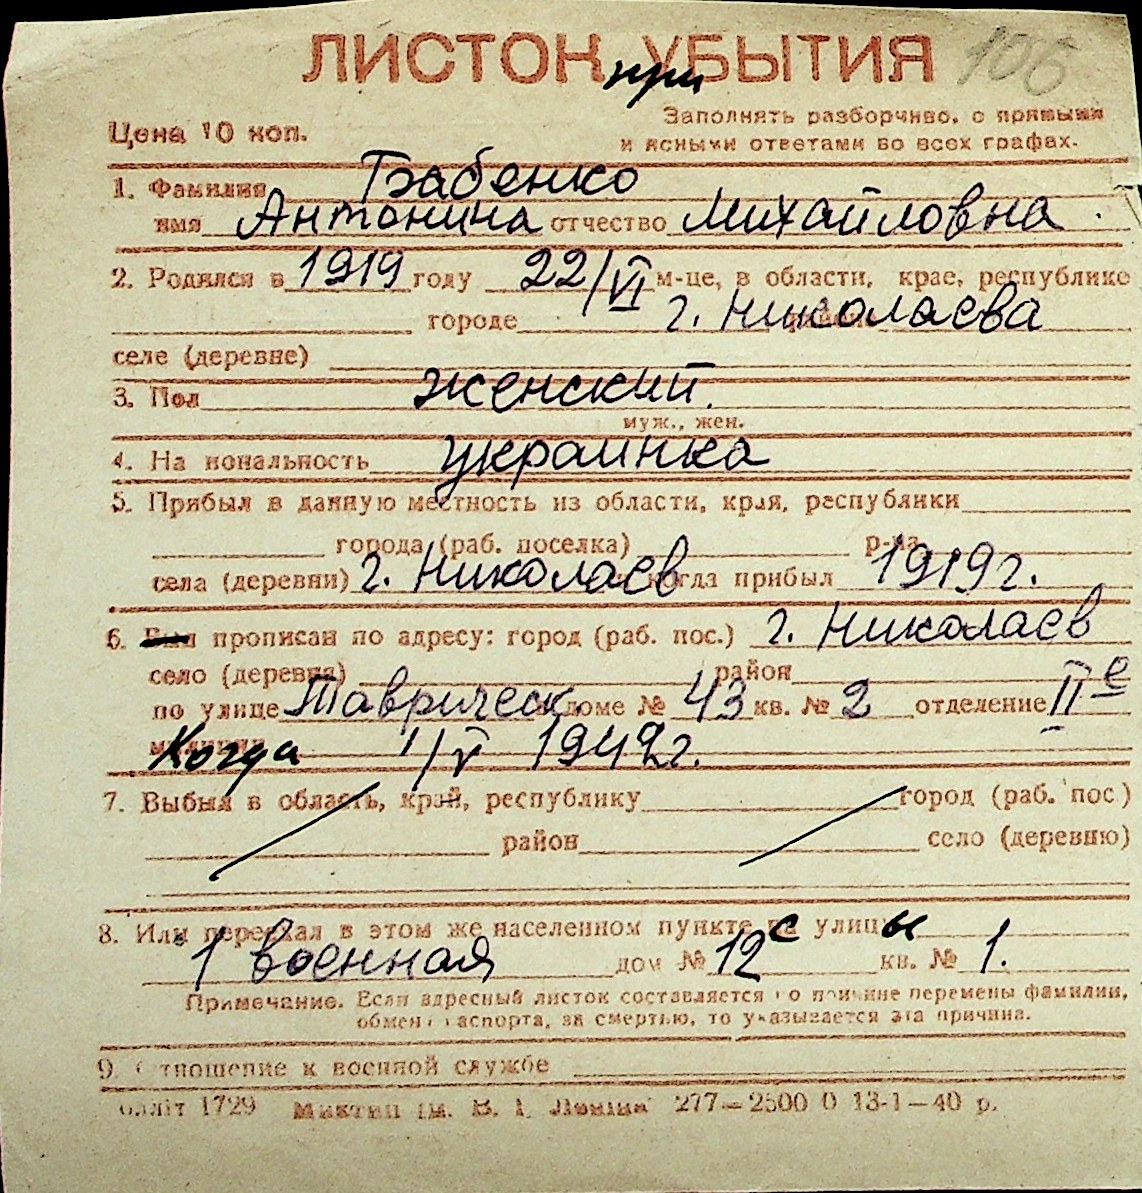 ЛИСТОК при УБЫТИЯ 106
Цена 10 коп.
Заполнять разборчиво, с прямыми
и ясными ответами во всех графах.
1. Фамилия Бабенко
имя Антонина отчество Михайловна
2. Родился в 1919 году 22/VI м-це, в области, крае, республике
городе г. Николаева
селе (деревне)
3. Пол женский
муж., жен.
4. На иональность украинка
5. Прибыл в данную местность из области, края, республики
города (раб. поселка) р-на
села (деревни) г. Николаев когда прибыл 1919 г.
6. Был прописан по адресу: город (раб. пос.) г. Николаев
село (деревня) район
по улице Таврическ доме № 43 кв. № 2 отделение II е
милиции Когда 1/V 1942 г.
7. Выбыл в область, край, республику город (раб. пос.)
район село (деревню)
8. Или переехал в этом же населенном пункте с улицы
1 Военная дом № 12 кв. № 1.
Примечание. Если адресный листок составляется по причине перемены фамилии,
обмен паспорта, за смертью, то указывается эта причина.
9. Отношение к военной службе
1729 ім. В. І. Леніна 277—2500 0 13-1—40 р.